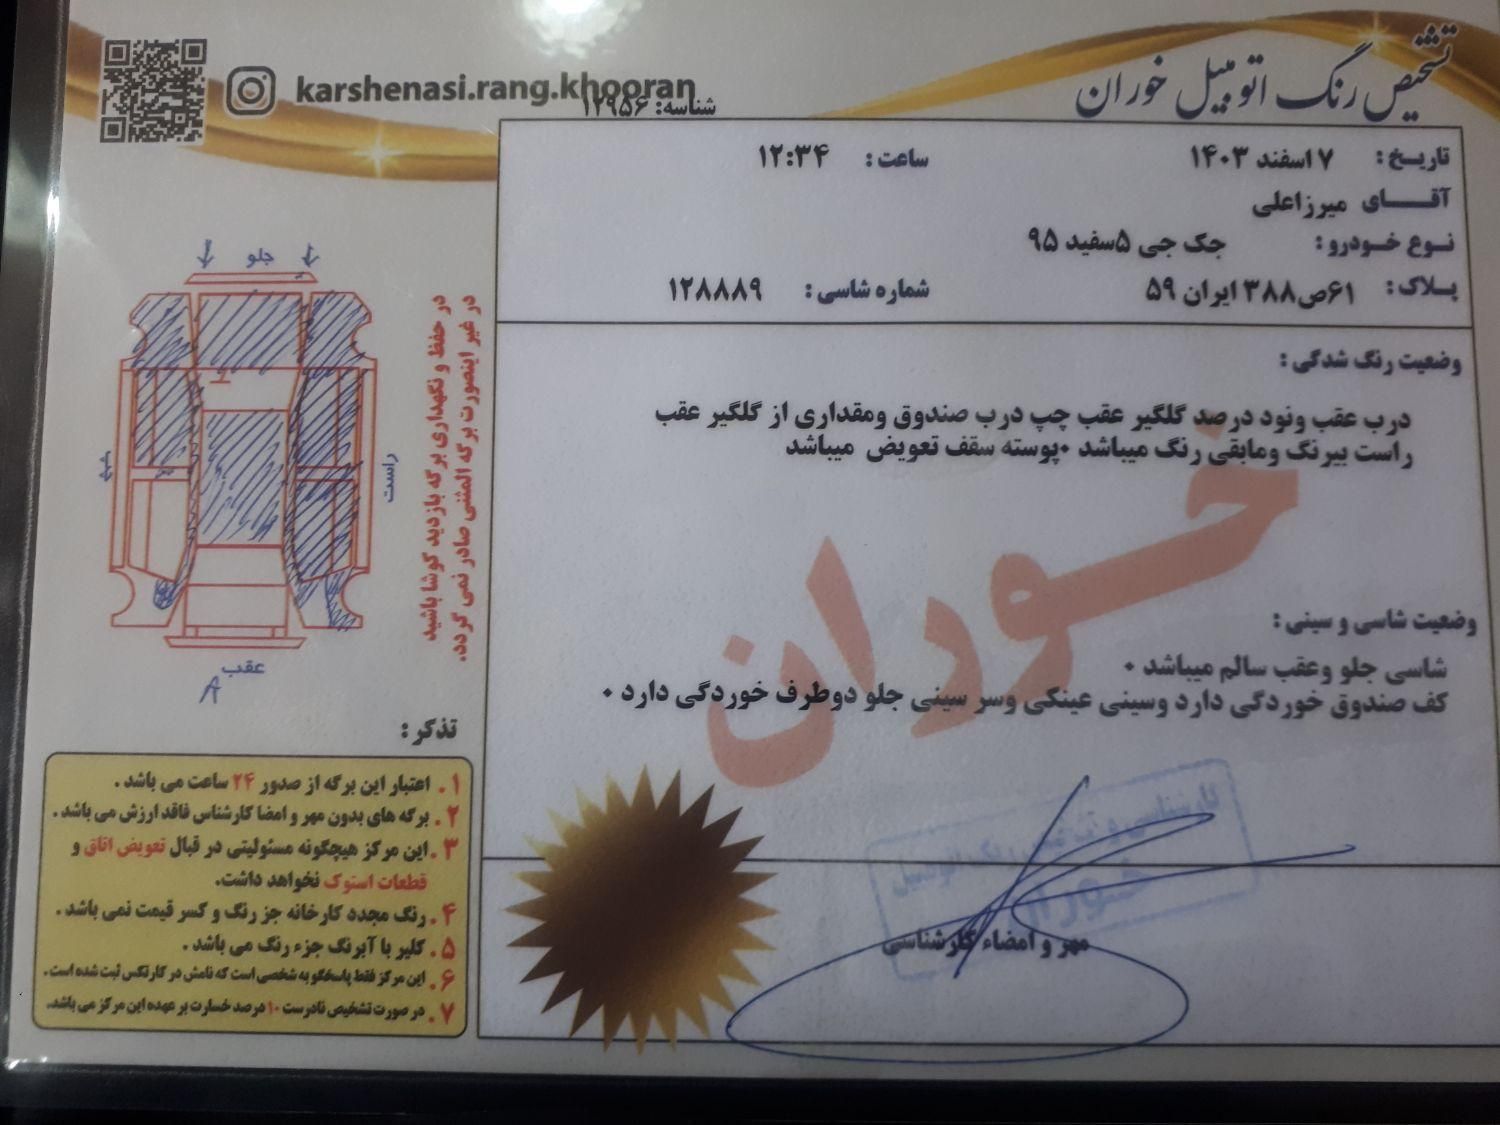 تشخیص رنگ اتومبیل خوران
karshenasi.rang.khooran
شناسه: ۱۲۹۵۶
تاریخ: ۷ اسفند ۱۴۰۳ ساعت: ۱۲:۳۴
آقای میرزاعلی
نوع خودرو: جک جی ۵سفید ۹۵
پلاک: ۶۱ص۳۸۸ ایران ۵۹ شماره شاسی: ۱۲۸۸۸۹
وضعیت رنگ شدگی:
درب عقب ونود درصد گلگیر عقب چپ درب صندوق ومقداری از گلگیر عقب
راست بیرنگ ومابقی رنگ میباشد ۰پوسته سقف تعویض میباشد
خوران
وضعیت شاسی و سینی:
شاسی جلو وعقب سالم میباشد ۰
کف صندوق خوردگی دارد وسینی عینکی وسر سینی جلو دوطرف خوردگی دارد ۰
کارشناسی و تشخیص رنگ اتومبیل
خوران
مهر و امضاء کارشناسی
جلو
راست
چپ
عقب
A
در حفظ و نگهداری برگه بازدید کوشا باشید
در غیر اینصورت برگه المثنی صادر نمی گردد.
تذکر:
۱. اعتبار این برگه از صدور ۲۴ ساعت می باشد.
۲. برگه های بدون مهر و امضا کارشناس فاقد ارزش می باشد.
۳. این مرکز هیچگونه مسئولیتی در قبال تعویض اتاق و
قطعات استوک نخواهد داشت.
۴. رنگ مجدد کارخانه جز رنگ و کسر قیمت نمی باشد.
۵. کلیر یا آبرنگ جزء رنگ می باشد.
۶. این مرکز فقط پاسخگو به شخصی است که نامش در کارتکس ثبت شده است.
۷. در صورت تشخیص نادرست ۱۰ درصد خسارت بر عهده این مرکز می باشد.